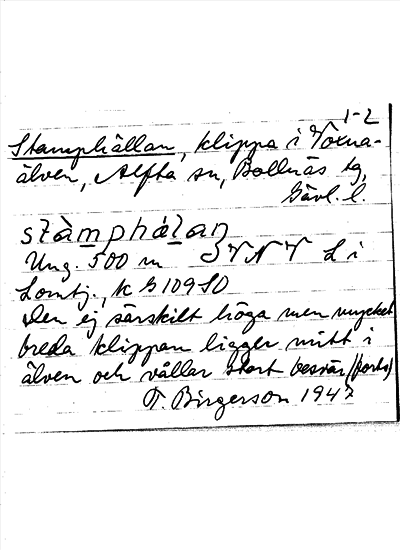 1-2
Stamphällan, klippa i Voxna-
älven, Alfta sn, Bollnäs tg,
Gävl. l.
stàmphälan
Ung. 500 m SVNV L i
Lomtj., K G 109 SO
Den ej särskilt höga men mycket
breda klippan ligger mitt i
älven och vållar stort besvär (forts)
T. Birgerson 1947